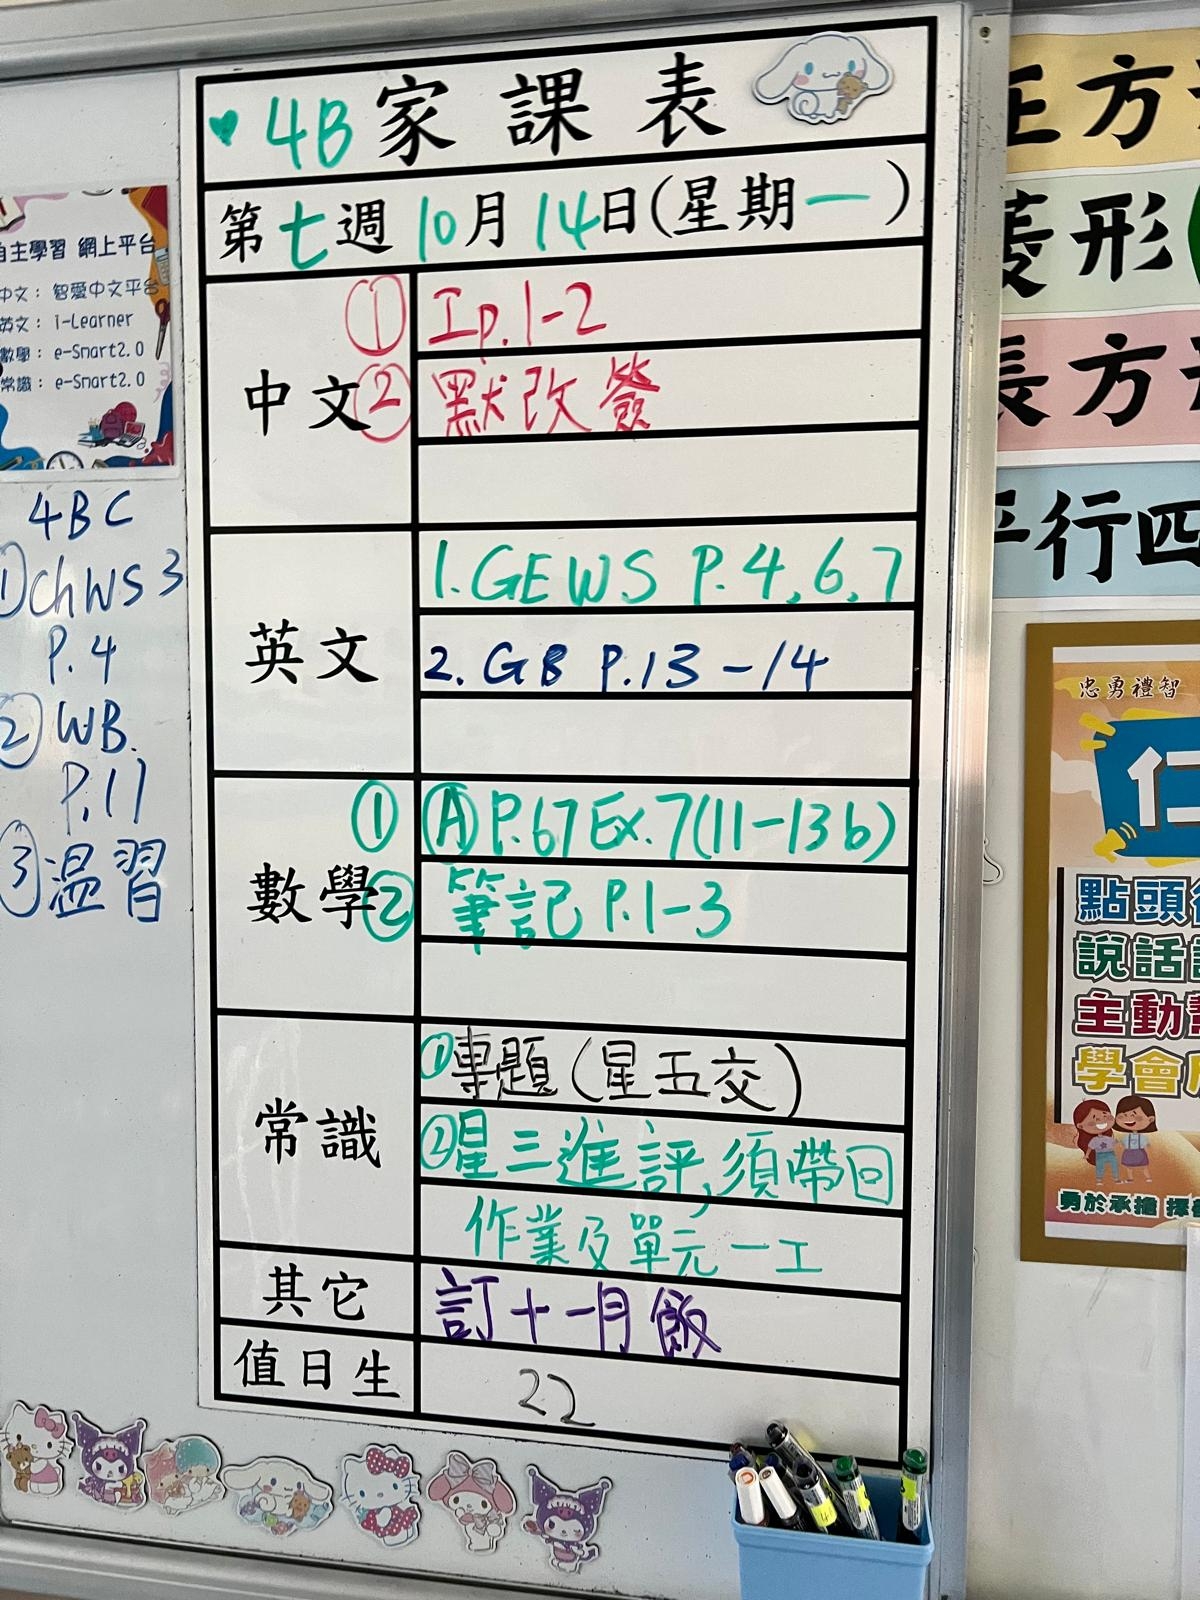 4B家課表
第七週10月14日(星期一)
中文
① 工p.1-2
② 默改簽
英文
1.GEWS P.4,6,7
2.GB P.13-14
數學
① Ⓐ P.67 Ex.7(11-13b)
② 筆記 P.1-3
常識
①專題(星五交)
②星三進評,須帶回
作業及單元一工
其它
訂十一月飯
值日生
22
自主學習 網上平台
中文: 智愛中文平台
英文: i-Learner
數學: e-Smart2.0
常識: e-Smart2.0
4BC
①ChWS3
P.4
②WB.
P.11
③温習
正方
菱形
長方
平行四
忠勇禮智
仁
點頭
說話
主動
學會
勇於承擔